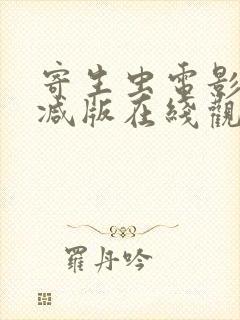 寄生虫電影
减版在綫觀
羅丹吟